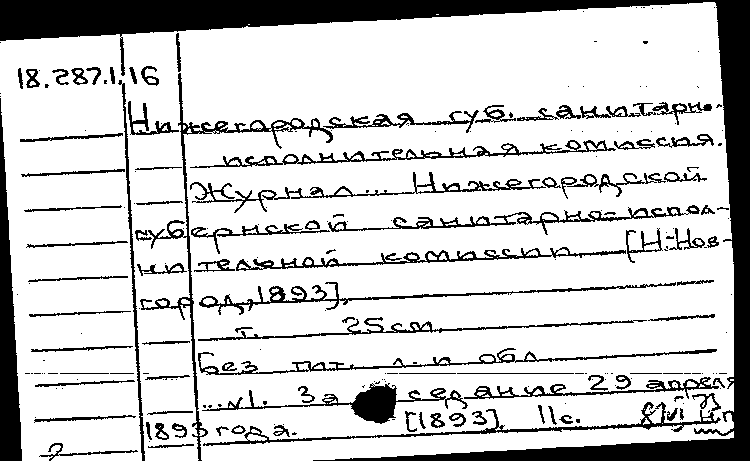 18.287.1.16
Нижегородская губ. санитарно-
исполнительная комиссия.
Журнал... Нижегородской
губернской санитарно-испол-
нительной комиссии [Н.-Нов-
город, 1893].
т. 25см.
Без тит. л. и обл.
...№1. За седание 29 апреля
1893 года. [1893]. 11с.